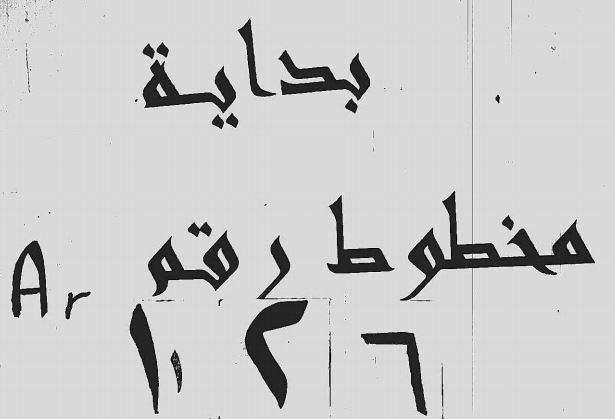 بداية
مخطوط رقم Ar
١٠٢٦